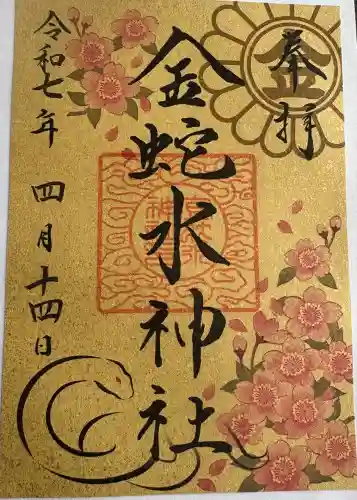 奉拝
金蛇水神社
令和七年 四月十四日